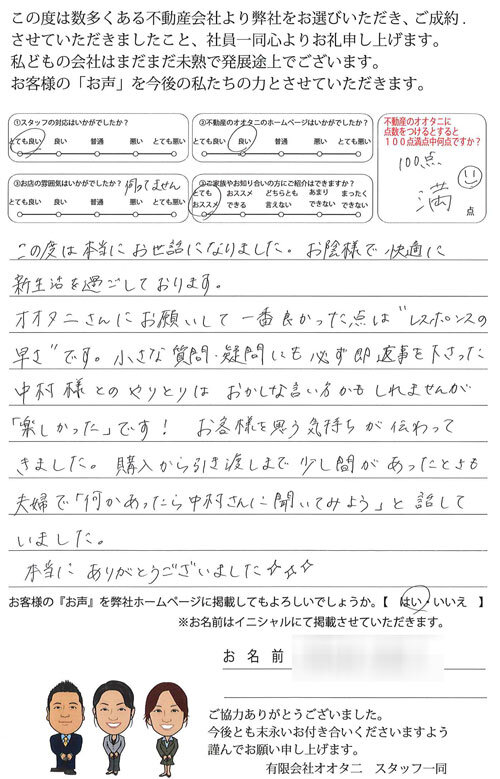 この度は数多くある不動産会社より弊社をお選びいただき、ご成約.
させていただきましたこと、社員一同心よりお礼申し上げます。
私どもの会社はまだまだ未熟で発展途上でございます。
お客様の「お声」を今後の私たちの力とさせていただきます。
①スタッフの対応はいかがでしたか?
とても良い 良い 普通 悪い とても悪い
②不動産のオオタニのホームページはいかがでしたか?
とても良い 良い 普通 悪い とても悪い
③お店の雰囲気はいかがでしたか? 伺ってません
とても良い 良い 普通 悪い とても悪い
②ご家族やお知り合いの方にご紹介はできますか?
とても オススメ どちらとも あまり まったく
オススメ できる 言えない できない できない
不動産のオオタニに
点数をつけるとすると
100点満点中何点ですか?
100点
満
点
この度は本当にお世話になりました。お陰様で快適に
新生活を過ごしております。
オオタニさんにお願いして一番良かった点は"レスポンスの
早さ"です。小さな質問・疑問にも必ず即返事を下さった
中村様とのやりとりは おかしな言い方かもしれませんが
「楽しかった」です! お客様を思う気持ちが伝わって
きました。購入から引き渡しまで少し間があったときも
夫婦で「何かあったら中村さんに聞いてみよう」と話して
いました。
本当に ありがとうございました☆☆☆
お客様の『お声』を弊社ホームページに掲載してもよろしいでしょうか。【 はい・いいえ 】
※お名前はイニシャルにて掲載させていただきます。
お 名 前
ご協力ありがとうございました。
今後とも末永いお付き合いくださいますよう
謹んでお願い申し上げます。
有限会社オオタニ スタッフ一同